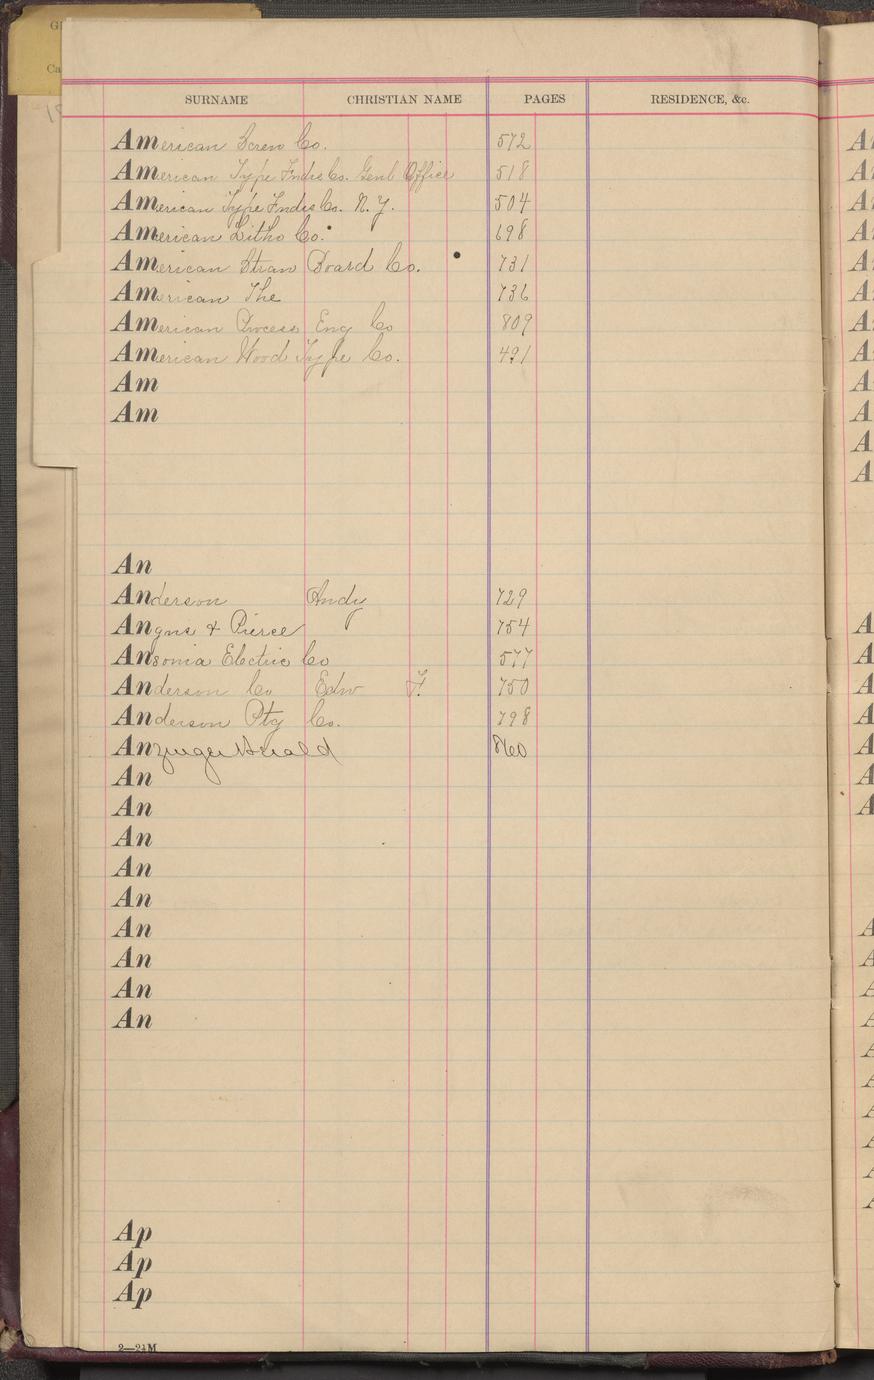 SURNAME CHRISTIAN NAME PAGES RESIDENCE, &c.
American Screw Co. 572
American Type Fndrs Co. Genl Office 518
American Type Fndrs Co. N.Y. 504
American Litho Co. 698
American Straw Board Co. 731
American The 736
American Process Eng Co 809
American Wood Type Co. 491
Am
Am
An
Anderson Andy 729
Angus & Pierce 754
Ansonia Electric Co 577
Anderson Co Edw F. 750
Anderson Ptg Co. 798
Anzeiger Herald 860
An
An
An
An
An
An
An
An
An
Ap
Ap
Ap
2—2½M